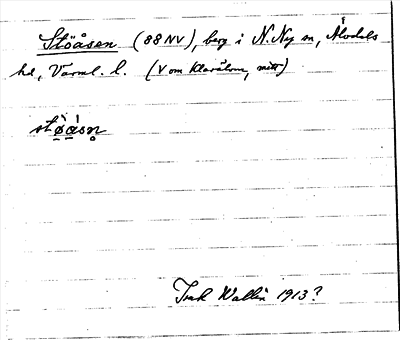 Stöåsen (88NV), berg i N. Ny sn, Älvdals
hd, Värml. l. (V om Klarälven, mitt)
stø̀ásn̥
Isak Wallin 1913?